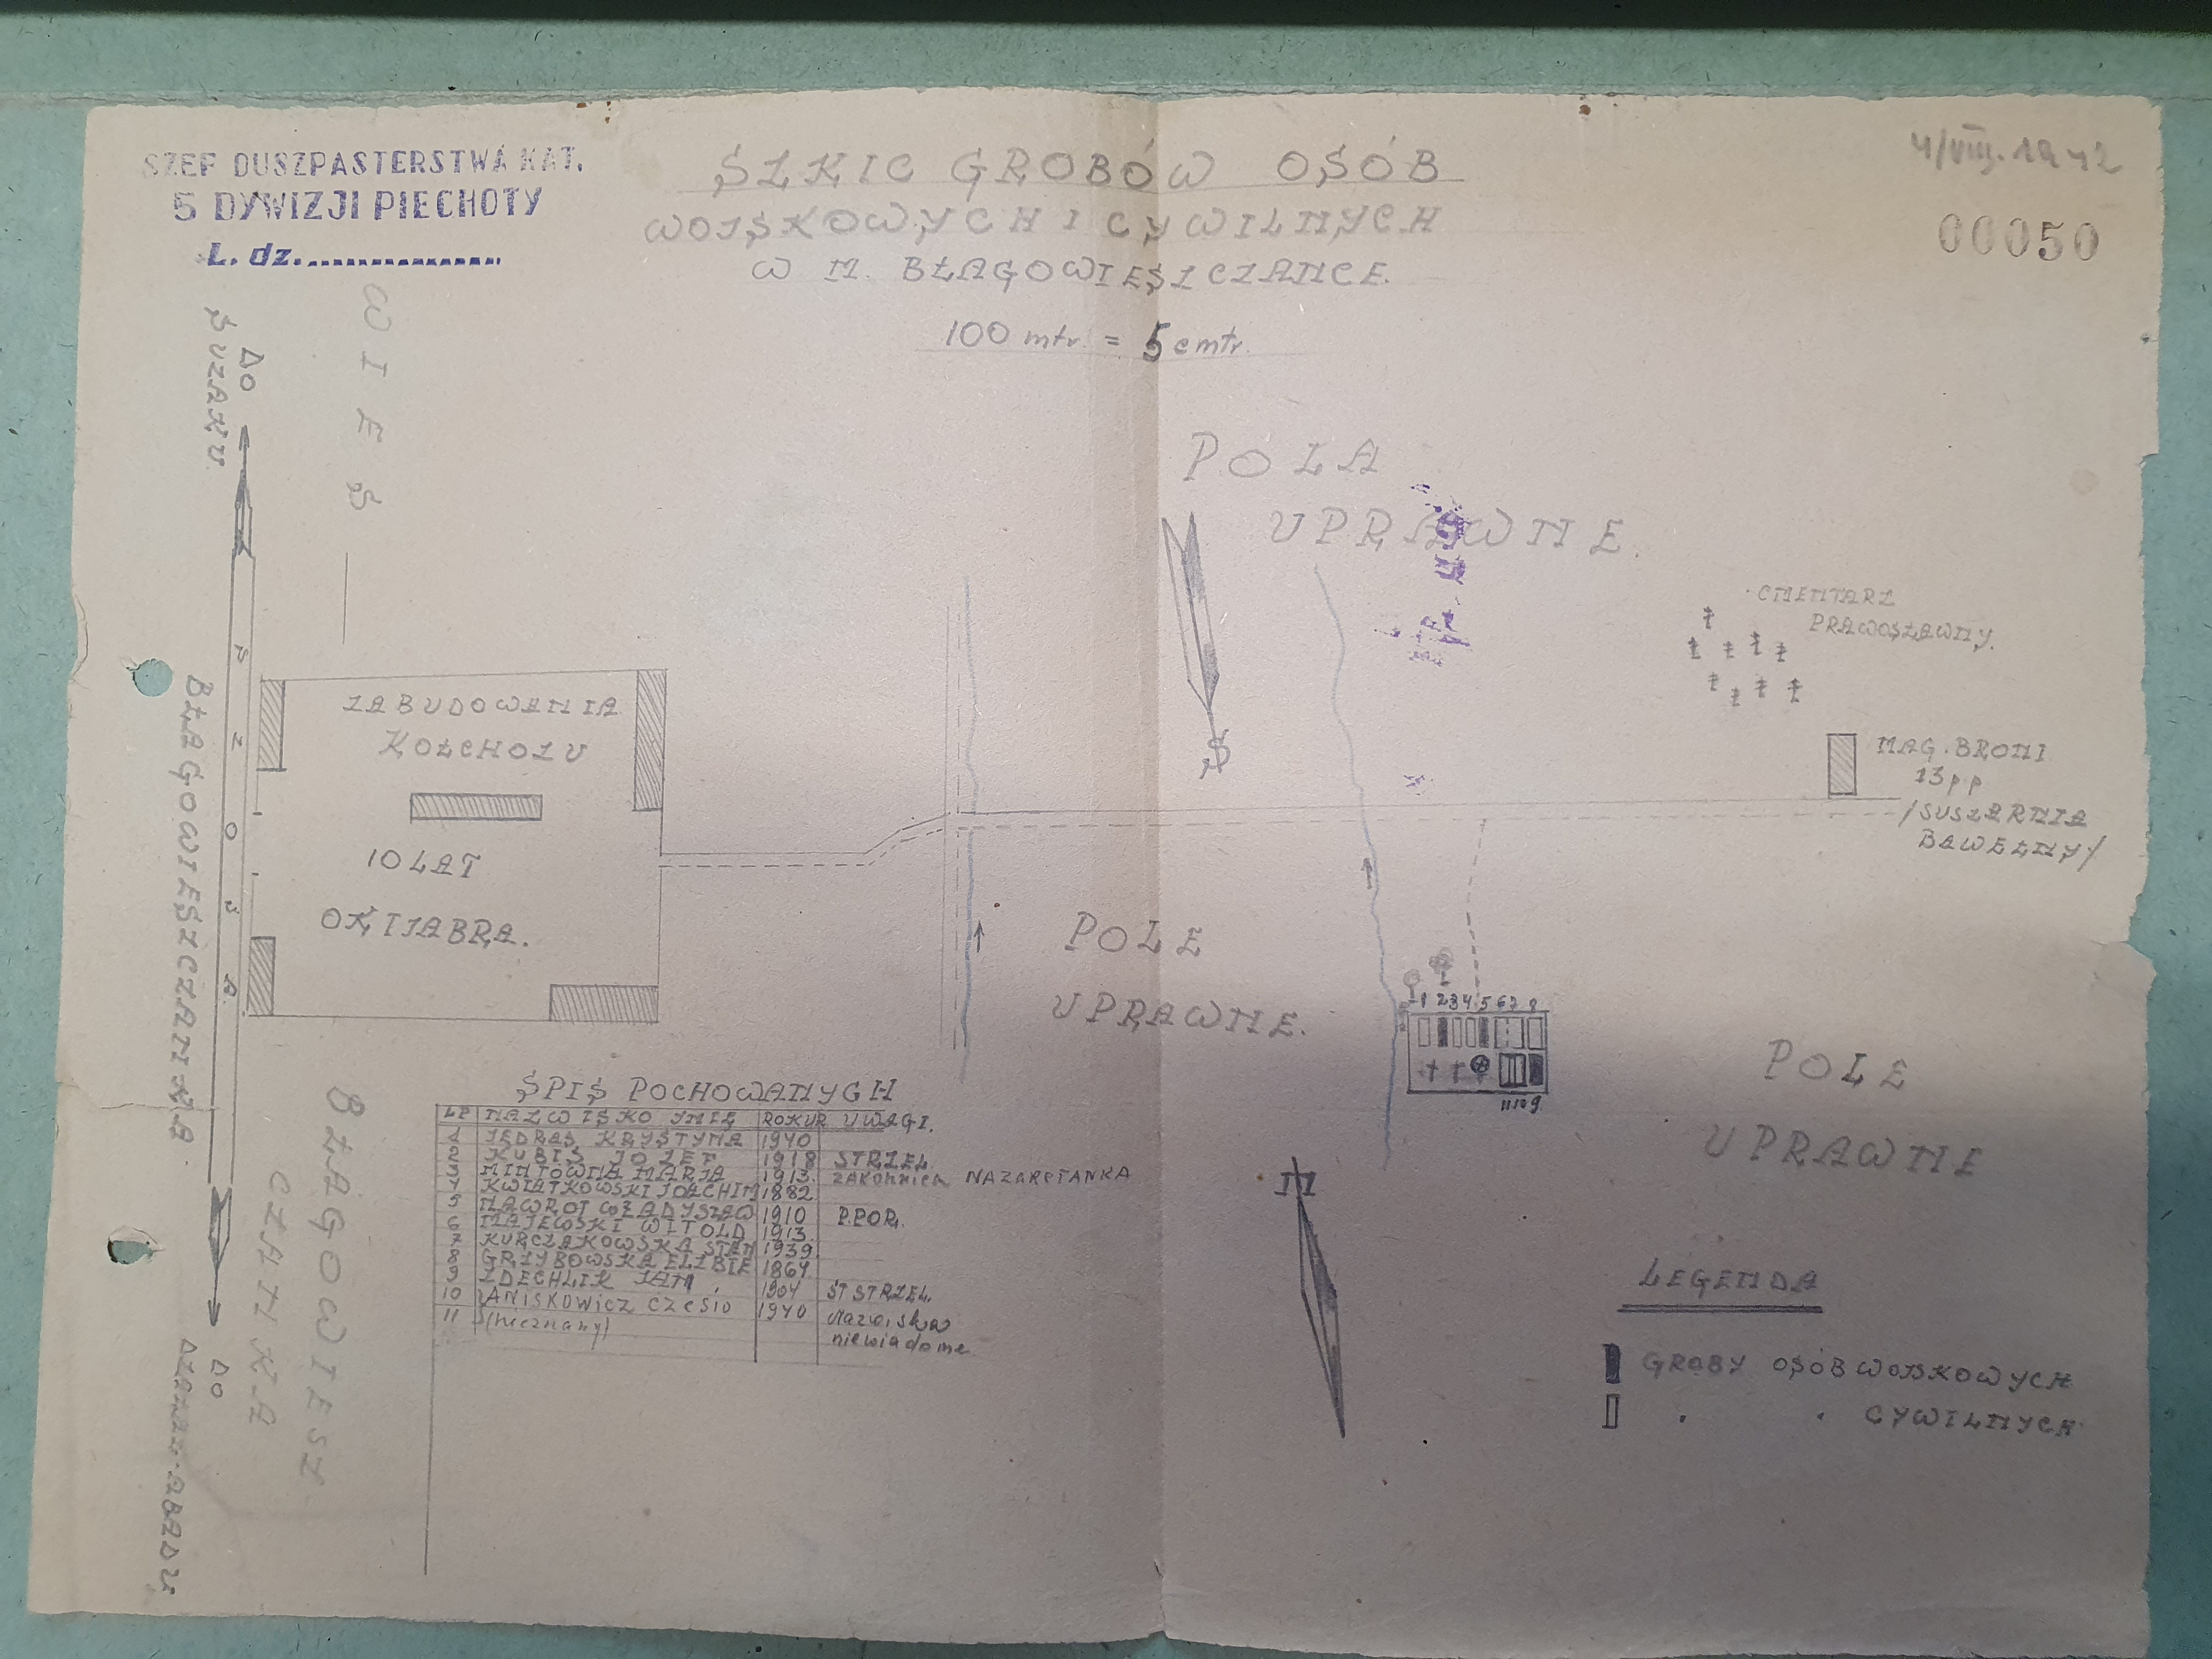 SZEF DUSZPASTERSTWA KAT.
5 DYWIZJI PIECHOTY
L. dz. ..................
SZKIC GROBÓW OSÓB
WOJSKOWYCH I CYWILNYCH
W M. BŁAGOWIESZCZANCE.
100 mtr. = 5 cmtr.
4/VIII. 1942
00050
DO
SUZAKU.
WIEŚ —
SZOSA.
BŁAGOWIESZCZANKA
BŁAGOWIESZ
CZANKA
DO
POLA
UPRAWNE.
S
CMENTARZ
PRAWOSŁAWNY.
ZABUDOWANIA
KOŁCHOZU
10 LAT
OKTJABRA.
MAG. BRONI
13 p p
/SUSZARNIA
BAWEŁNY/
POLE
UPRAWNE.
1 2 3 4 5 6 7 8
11 10 9
POLE
UPRAWNE
N
SPIS POCHOWANYCH
LP NAZWISKO IMIĘ ROK UR UWAGI.
1 JĘDRAS KRYSTYNA 1940
2 KUBIS JOZEF 1918 STRZEL.
3 MINTOWNA MARJA 1913. zakonnica NAZARETANKA
4 KWIATKOWSKI JOACHIM 1882
5 NAWROT WŁADYSŁAW 1910 P.POR.
6 MAJEWSKI WITOLD 1913.
7 KURCZAKOWSKA STAN 1939
8 GRZYBOWSKA ELZBIE 1864
9 ZDECHLIK JAN 1904 ST STRZEL.
10 JANISKOWICZ CZESIO 1940 Nazwiska
11 (nieznany) niewiadome
LEGENDA
GROBY OSÓB WOJSKOWYCH
" " CYWILNYCH